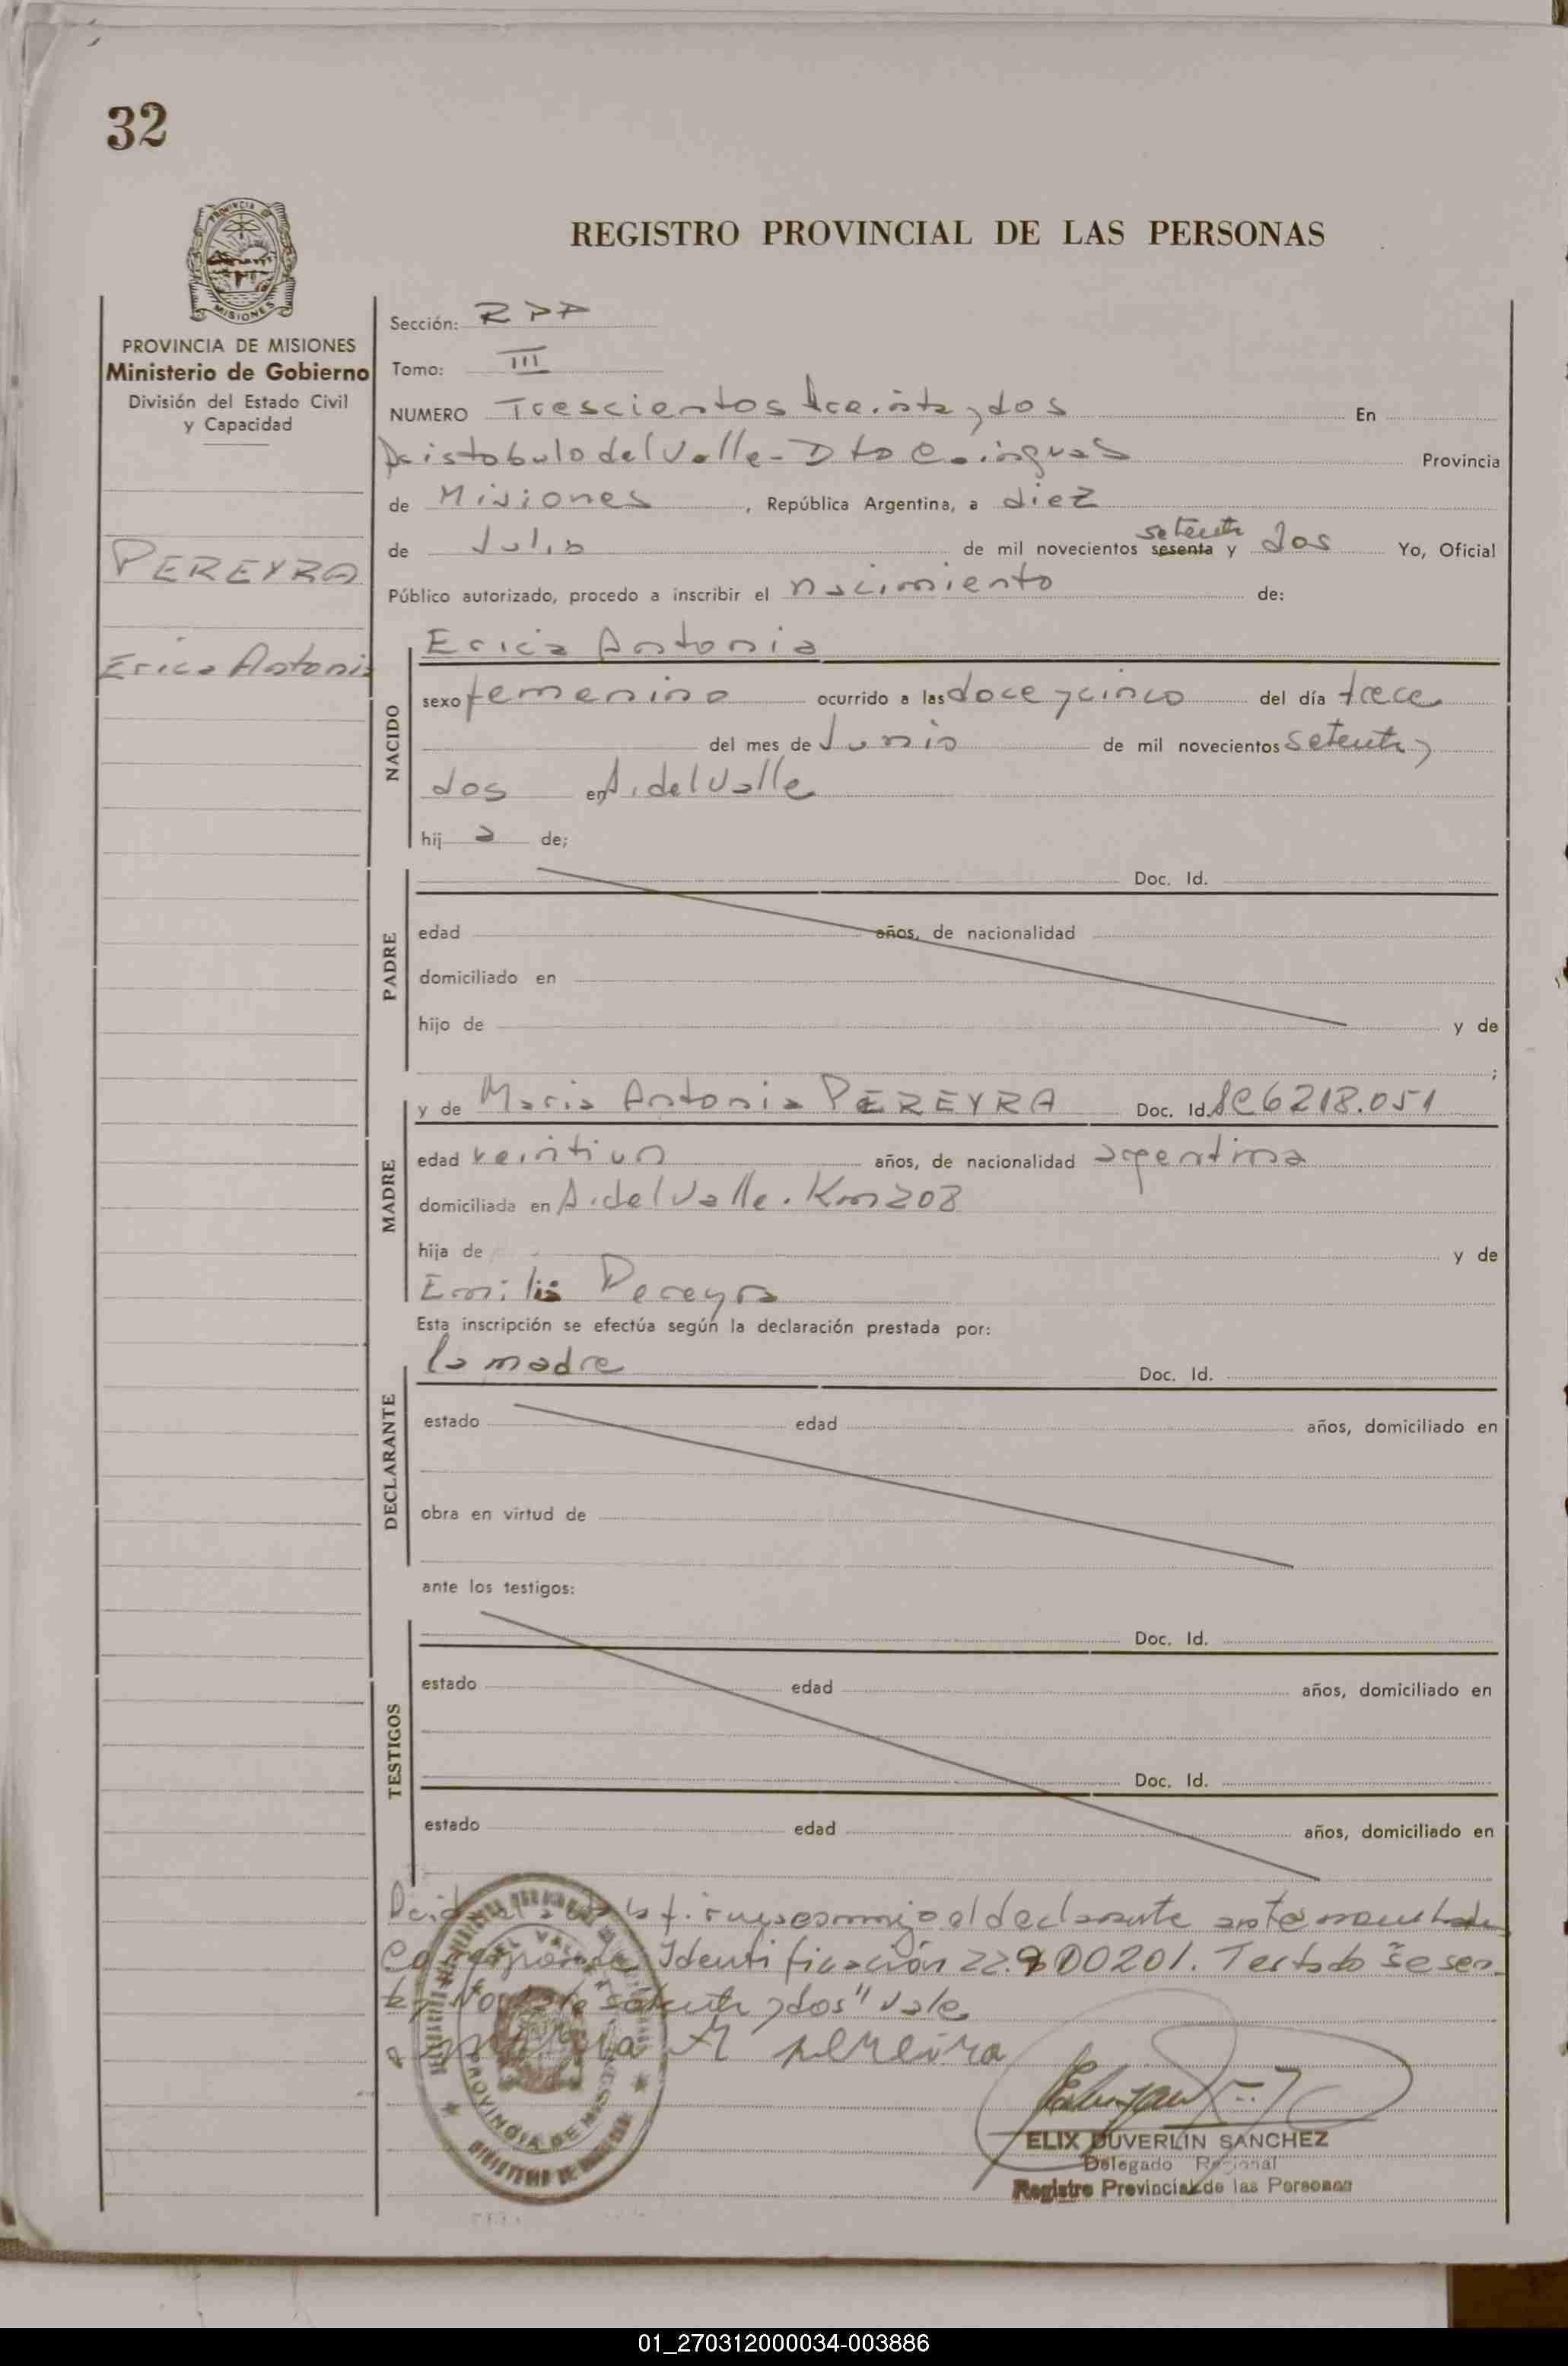 32
REGISTRO PROVINCIAL DE LAS PERSONAS
PROVINCIA DE MISIONES
Ministerio de Gobierno
División del Estado Civil
y Capacidad
PEREYRA
Erica Antonia
Sección: RPP
Tomo: III
NUMERO Trescientos treinta y dos En
Aristobulo del Valle - Dto Cainguas Provincia
de Misiones, República Argentina, a diez
setenta
de Julio de mil novecientos sesenta y dos Yo, Oficial
Público autorizado, procedo a inscribir el nacimiento de:
NACIDO
Erica Antonia
sexo femenino ocurrido a las doce y cinco del día trece
del mes de Junio de mil novecientos setenta y
dos en A. del Valle
hij a de;
PADRE
Doc. Id.
edad años, de nacionalidad
domiciliado en
hijo de y de
;
MADRE
y de Maria Antonia PEREYRA Doc. Id. LC 6218.051
edad veintiun años, de nacionalidad argentina
domiciliada en A. del Valle. Km 208
hija de y de
Emilia Pereyra
Esta inscripción se efectúa según la declaración prestada por:
DECLARANTE
la madre Doc. Id.
estado edad años, domiciliado en
obra en virtud de
ante los testigos:
TESTIGOS
Doc. Id.
estado edad años, domiciliado en
Doc. Id.
estado edad años, domiciliado en
el acta la firma conmigo el declarante
Corresponde Identificación 22.900201. Testado "sesen-
ta" setenta y dos" vale
maria A pereira
PROVINCIA DE MISIONES
ELIX DUVERLIN SANCHEZ
Delegado Regional
Registro Provincial de las Personas
01_270312000034-003886